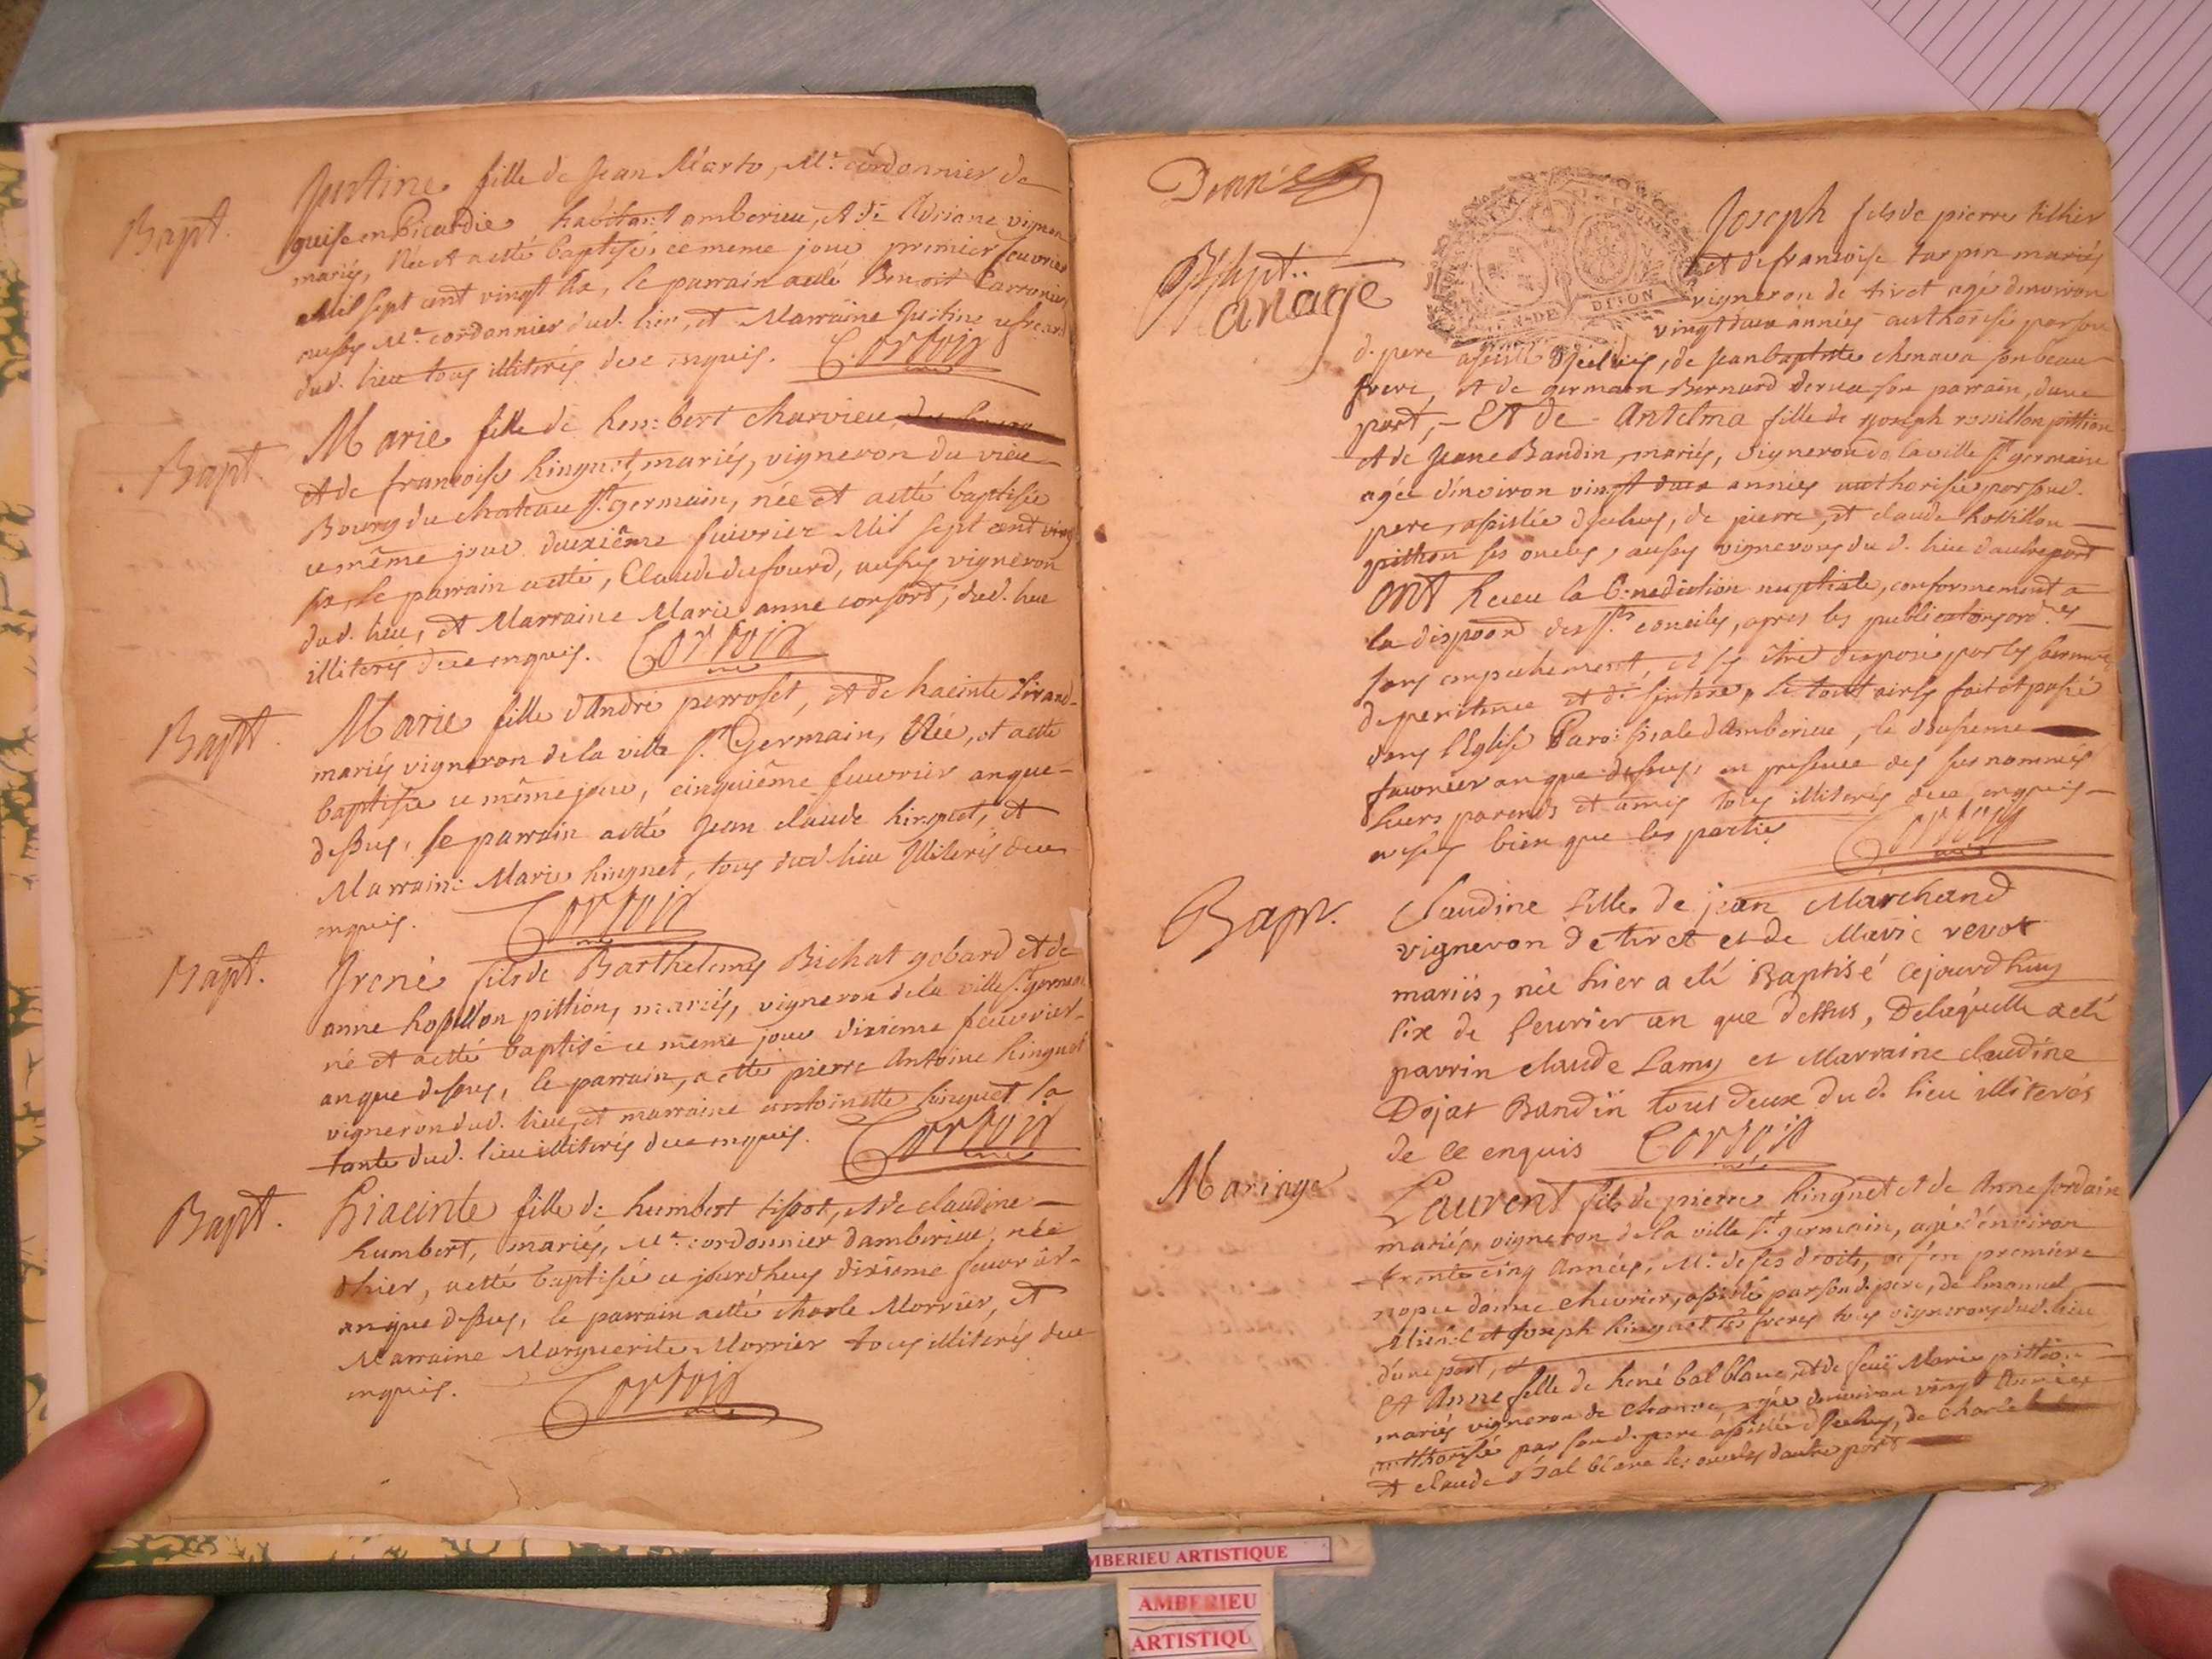 Bapt.
Justine fille de Jean Marto, Mr. cordonnier de
guise en Picardie habitant amberieu, et de Adriane vignon
mariés, Née et aetté baptisée ce meme jour premier feuvrier
Mil sept cent vingt six, le parrain aetté Benoit Carronier
aussy Mr. cordonnier dud. lieu, et Marraine Justine
dud. lieu tous illiterés de ce enquis. Cortois
Bapt.
Marie fille de humbert charvieu
et de francoise hinguet, mariés, vigneron du vieu
Bourg du chateau St. germain, née et aetté baptisée
ce même jour deuxiême feuvrier Mil sept cent vingt
six, le parrain aetté, Claude dufourd, aussy vigneron
dud. lieu, et Marraine Marie anne corsord, dud. lieu
illiterés de ce enquis. Cortois
Bapt.
Marie fille d'Andre perroset, et de hacinte
mariés vigneron de la ville St. Germain, Née, et aetté
baptisée ce même jour, cinquiême feuvrier an que
dessus, le parrain aetté Jean claude hinguet, et
Marraine Marie hinguet, tous dud. lieu Illiterés de ce
enquis. Cortois
Bapt.
Irené fils de Barthelemy Bichat gobard et de
anne rossillon pittion, mariés, vigneron de la ville St. germain
né et aetté baptisé ce meme jour dixieme feuvrier
an que dessus, le parrain, aetté pierre Antoine hinguet
vigneron dud. lieu, et marraine antoinette hinguet sa
tante dud. lieu illiterés de ce enquis. Cortois
Bapt.
Hiacinte fille de humbert tissot, et de claudine
humbert, mariés, Mr. cordonnier d'amberieu, née
d'hier, aetté baptisée ce jourdhuy dixieme feuvrier
an que dessus, le parrain aetté charle Morrier, et
Marraine Marguerite Morrier tous illiterés de ce
enquis. Cortois
Bapt.
ariage
DE DIJON
Joseph fils de pierre tillier
et de francoise tarpin mariés
vigneron de tiret agé d'environ
vingt deux années authorisé par son
d. pere assisté d'Jceluy, de Jean baptiste chenava son beau
frere, et de germain Bernard derieu son parrain, d'une
part, Et de Antelma fille de Joseph rossillon pittion
et de Jeane Bandin, mariés, vigneron de la ville St. germain
agée d'environ vingt deux années authorisée par sond.
pere, assistée d'Jceluy, de pierre, et claude Rossillon
pitthon ses oncles, aussy vignerons du d. lieu d'autre part
ont Receu la benediction nuptiale, conformement a
la dispoon. des Sts. conciles, apres les publications ord.res
sans empechement, et s'y être disposés par les sacrements
de penitence et de, le tout ainsy fait et passé
dans l'Eglise Paroissiale d'Amberieu, le
feuvrier an que dessus, en presence des sus nommés
leurs parents et amis tous illiterés de ce enquis
aussy bien que les parties Cortois
Bapt.
Claudine fille de jean Marchand
vigneron de tiret et de Marie revot
mariés, née hier a eté Baptisé cejourdhuy
six de feurier an que dessus, De laquelle a eté
parrin claude Lamy et Marraine claudine
Dojat Bandin tout deux du d. lieu illiterés
de ce enquis Cortois
Mariage
Laurent fils de pierre hinguet et de Anne Jordain
mariés, vigneron de la ville St. germain, agé d'environ
trente cinq années, Mr. de ses droits, en premiere
nopce d'anne chevrier, assisté par sond. pere, de Emanuel
Michel et Joseph hinguet ses freres tous vignerons dud. lieu
d'une part, et
Et Anne fille de René bal blanc, et de feüe Marie pittion
mariés vigneron de Chamve, agée d'environ vingt années
authorisée par son d. pere assistée d'Jceluy, de charle
et claude bal blanc ses oncles d'autre part
AMBERIEU ARTISTIQUE
AMBERIEU
ARTISTIQU